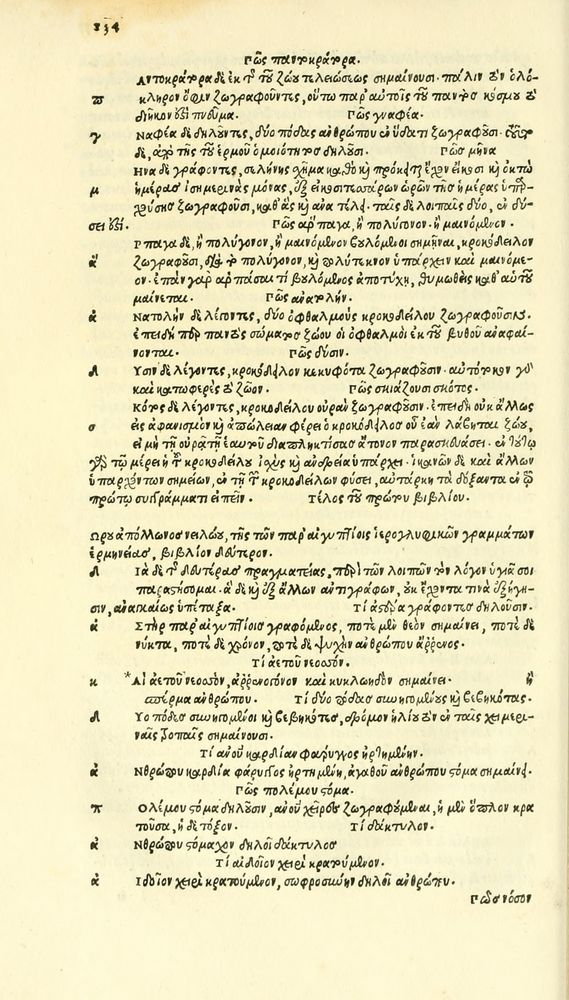 134
Πῶς παντοκράτορα.
Αυτοκράτορα δὲ ἐκ τ̃ τοῦ ζώου τελειώσεως σημαίνουσι· πάλιν τὸν ὁλό-
π κληρον ὄφιν ζωγραφοῦντες, οὕτω παρ' αὐτοῖς τοῦ παντὸς κόσμου τὸ
διῆκον ὅστι πνεῦμα. Πῶς γναφέα.
γ Ναφέα δὲ δηλοῦντες, δύο πόδας ἀνθρώπου ἐν ὕδατι ζωγραφοῦσι· τοῦτο
δὲ, ἀπὸ τῆς τοῦ ἔργου ὁμοιότητος δηλοῦσι. Πῶς μῆνα
Ηνα δὲ γράφοντες, σελήνης σχῆμα καθὸ καὶ πρόκειται ἔχον εἴκοσι καὶ ὀκτὼ
μ ἡμέρας ἰσημερινὰς μόνας, ἐξ εἰκοσιτεσσάρων ὡρῶν τῆς ἡμέρας ὑπαρ-
χούσης ζωγραφοῦσι, καθ' ἃς καὶ ἀνατέλλει· ταῖς δὲ λοιπαῖς δύο, ἐν δύ-
σει ὅστι. Πῶς ἅρπαγα, ἢ πολύγονον· ἢ μαινόμενον.
Ρπαγα δὲ, ἢ πολύγονον, ἢ μαινόμενον βουλόμενοι σημῆναι, κροκόδειλον
ἅ ζωγραφοῦσι, διὰ τὸ πολύγονον, καὶ πολύτεκνον ὑπάρχειν καὶ μαινόμε-
ον· ἐπὰν γὰρ ἁρπάσαι τὶ βουλόμενος ἀποτύχῃ, θυμωθεὶς καθ' αὑτοῦ
μαίνεται. Πῶς ἀνατολήν.
ἀ Νατολὴν δὲ λέγοντες, δύο ὀφθαλμοὺς κροκοδείλου ζωγραφοῦσι.
ἐπειδὴ πρὸ παντὸς σώματος ζώου οἱ ὀφθαλμοὶ ἐκ τοῦ βυθοῦ ἀναφαί-
νονται. Πῶς δύσιν.
δ Υσιν δὲ λέγοντες, κροκόδειλον κεκυφότα ζωγραφοῦσιν· αὐτότοκον γὰρ
καὶ κατωφερὲς τὸ ζῶον. Πῶς σκιάζουσι σκότος.
Κότος δὲ λέγοντες, κροκοδείλου οὐρὰν ζωγραφοῦσιν· ἐπειδὴ οὐκ ἄλλως
σ εἰς ἀφανισμὸν καὶ ἀπώλειαν φέρει ὁ κροκόδειλος οὗ ἐὰν λάβηται ζώου,
εἰ μὴ τῇ οὐρᾷ τῇ ἑαυτοῦ διαπληκτίσας ἄτονον παρασκευάσει· ἐν τούτῳ
γὰρ τῷ μέρει ἡ τ̃ κροκοδείλου ἰσχὺς καὶ ἀνδρεία ὑπάρχει· ἱκανῶν δὲ καὶ ἄλλων
ὑπαρχόντων σημείων, ἐν τῇ τ̃ κροκοδείλων φύσει, αὐτάρκη τὰ δόξαντα ἐν τῷ
πρώτῳ συγγράμματι εἰπεῖν. Τέλος τοῦ πρώτου βιβλίου.
Ωρου ἀπόλλωνος νειλώου, τῆς τῶν παρ' αἰγυπτίοις ἱερογλυφικῶν γραμμάτων
ἑρμηνείας, βιβλίον δεύτερον.
Δ Ιὰ δὲ τ̃ δευτέρας πραγματείας, περὶ τῶν λοιπῶν τὸν λόγον ὑγιᾶ σοι
παραστήσομαι· ἃ δὲ καὶ ἐξ ἄλλων ἀντιγράφων, οὐκ ἔχοντά τινα ἐξήγη-
σιν, ἀναγκαίως ὑπέταξα. Τί ἀστέρα γράφοντες δηλοῦσιν.
ἀ Στὴρ παρ' αἰγυπτίοις γραφόμενος, ποτὲ μὲν θεὸν σημαίνει, ποτὲ δὲ
νύκτα, ποτὲ δὲ χρόνον, ποτὲ δὲ ψυχὴν ἀνθρώπου ἄῤῥενος.
Τί ἀετοῦ νεοσσόν.
κ *Αὶ ἀετοῦ νεοσσὸν, ἀῤῥενογόνον καὶ κυκλωηδὸν σημαίνει· ἢ
σπέρμα ἀνθρώπου. Τί δύο πόδας συνηγμένους καὶ βεβηκότας.
Δ Υο πόδες συνηγμένοι καὶ βεβηκότες, δρόμον ἡλίου τὸν ἐν ταῖς χειμερι-
ναῖς τροπαῖς σημαίνουσι.
Τί ἀνοῦ καρδίαν φάρυγγος ἠρτημένην.
ἀ Νθρώπου καρδία φάρυγγος ἠρτημένη, ἀγαθοῦ ἀνθρώπου στόμα σημαίνει.
Πῶς πολέμου στόμα.
π Ολέμου στόμα δηλοῦσιν, ἀνοῦ χεῖρες ζωγραφούμεναι, ἡ μὲν ὅπλον κρα
τοῦσα, ἡ δὲ τόξον. Τί δάκτυλον.
ἀ Νθρώπου στόμαχον δηλοῖ δάκτυλος
Τί αἰδοῖον χειρὶ κρατούμενον.
ἀ Ιδοῖον χειρὶ κρατούμενον, σωφροσύνην δηλοῖ ἀνθρώπου.
Πῶς νόσον